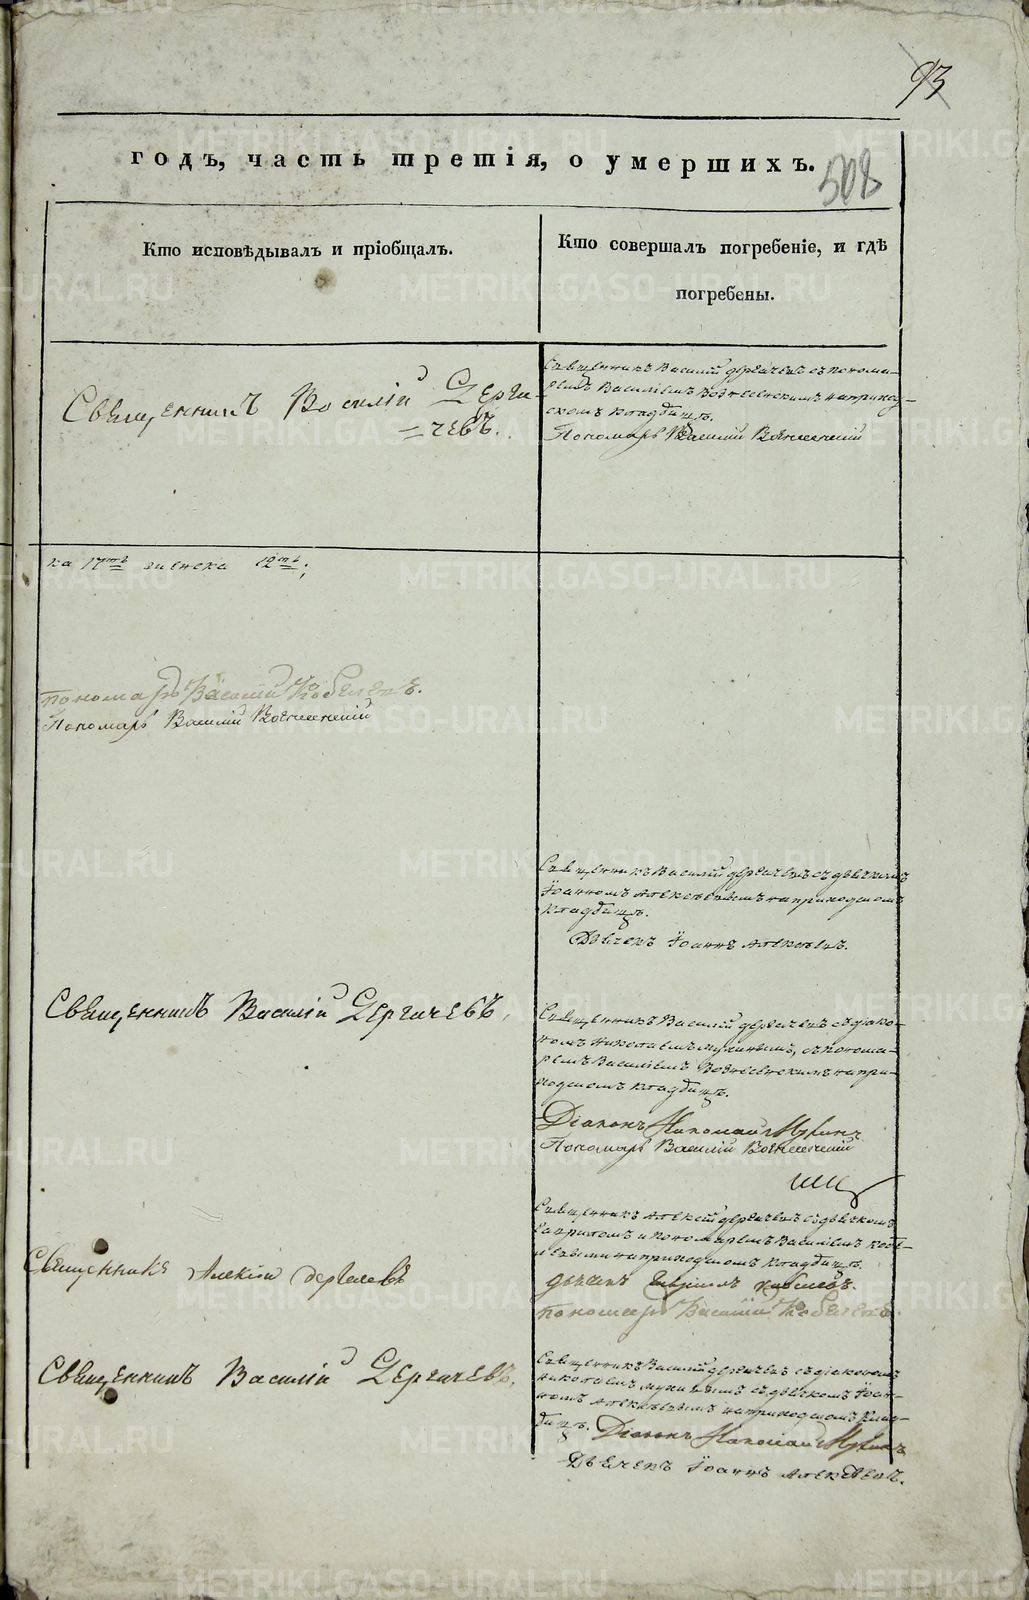 93
годъ, часть третія, о умершихъ.
508
Кто исповѣдывалъ и пріобщалъ.
Кто совершалъ погребеніе, и гдѣ
погребены.
Священникъ Василій Дерги-
=чевъ.
Священникъ Василій Дергачевъ съ понома-
ремъ Василіемъ Вознесенскимъ на приход-
скомъ кладбищѣ.
Пономарь Василій Вознесенскій
на 17тѣ 12тъ;
пономарь Василій Кобелевъ.
Пономарь Василій Вознесенскій
Священникъ Василій Дергачевъ съ дьячкомъ
Іоанномъ Алексѣевымъ на приходскомъ
кладбищѣ.
Дьячекъ Іоаннъ Алексѣевъ.
Священникъ Василій Дергичевъ,
Священникъ Василій Дергачевъ съ діако-
номъ Николаемъ Мухинымъ, съ понома-
ремъ Василіемъ Вознесенскимъ на при-
ходскомъ кладбищѣ.
Діаконъ Николай Мухинъ
Пономарь Василій Вознесенскій
Священникъ Алексій Дергачевъ съ дьячкомъ
Гавріломъ и пономаремъ Василіемъ Кобе-
левыми на приходскомъ кладбищѣ.
Священникъ Алексій Дергачевъ
дьячекъ Гавріилъ Кобелевъ.
пономарь Василій Кобелевъ.
Священникъ Василій Дергичевъ,
Священникъ Василій Дергачевъ съ діакономъ
Николаемъ Мухинымъ съ дьячкомъ Іоан-
номъ Алексѣевымъ на приходскомъ клад-
бищѣ. Діаконъ Николай Мухинъ
Дьячекъ Іоаннъ Алексѣевъ.
METRIKI.GASO-URAL.RU